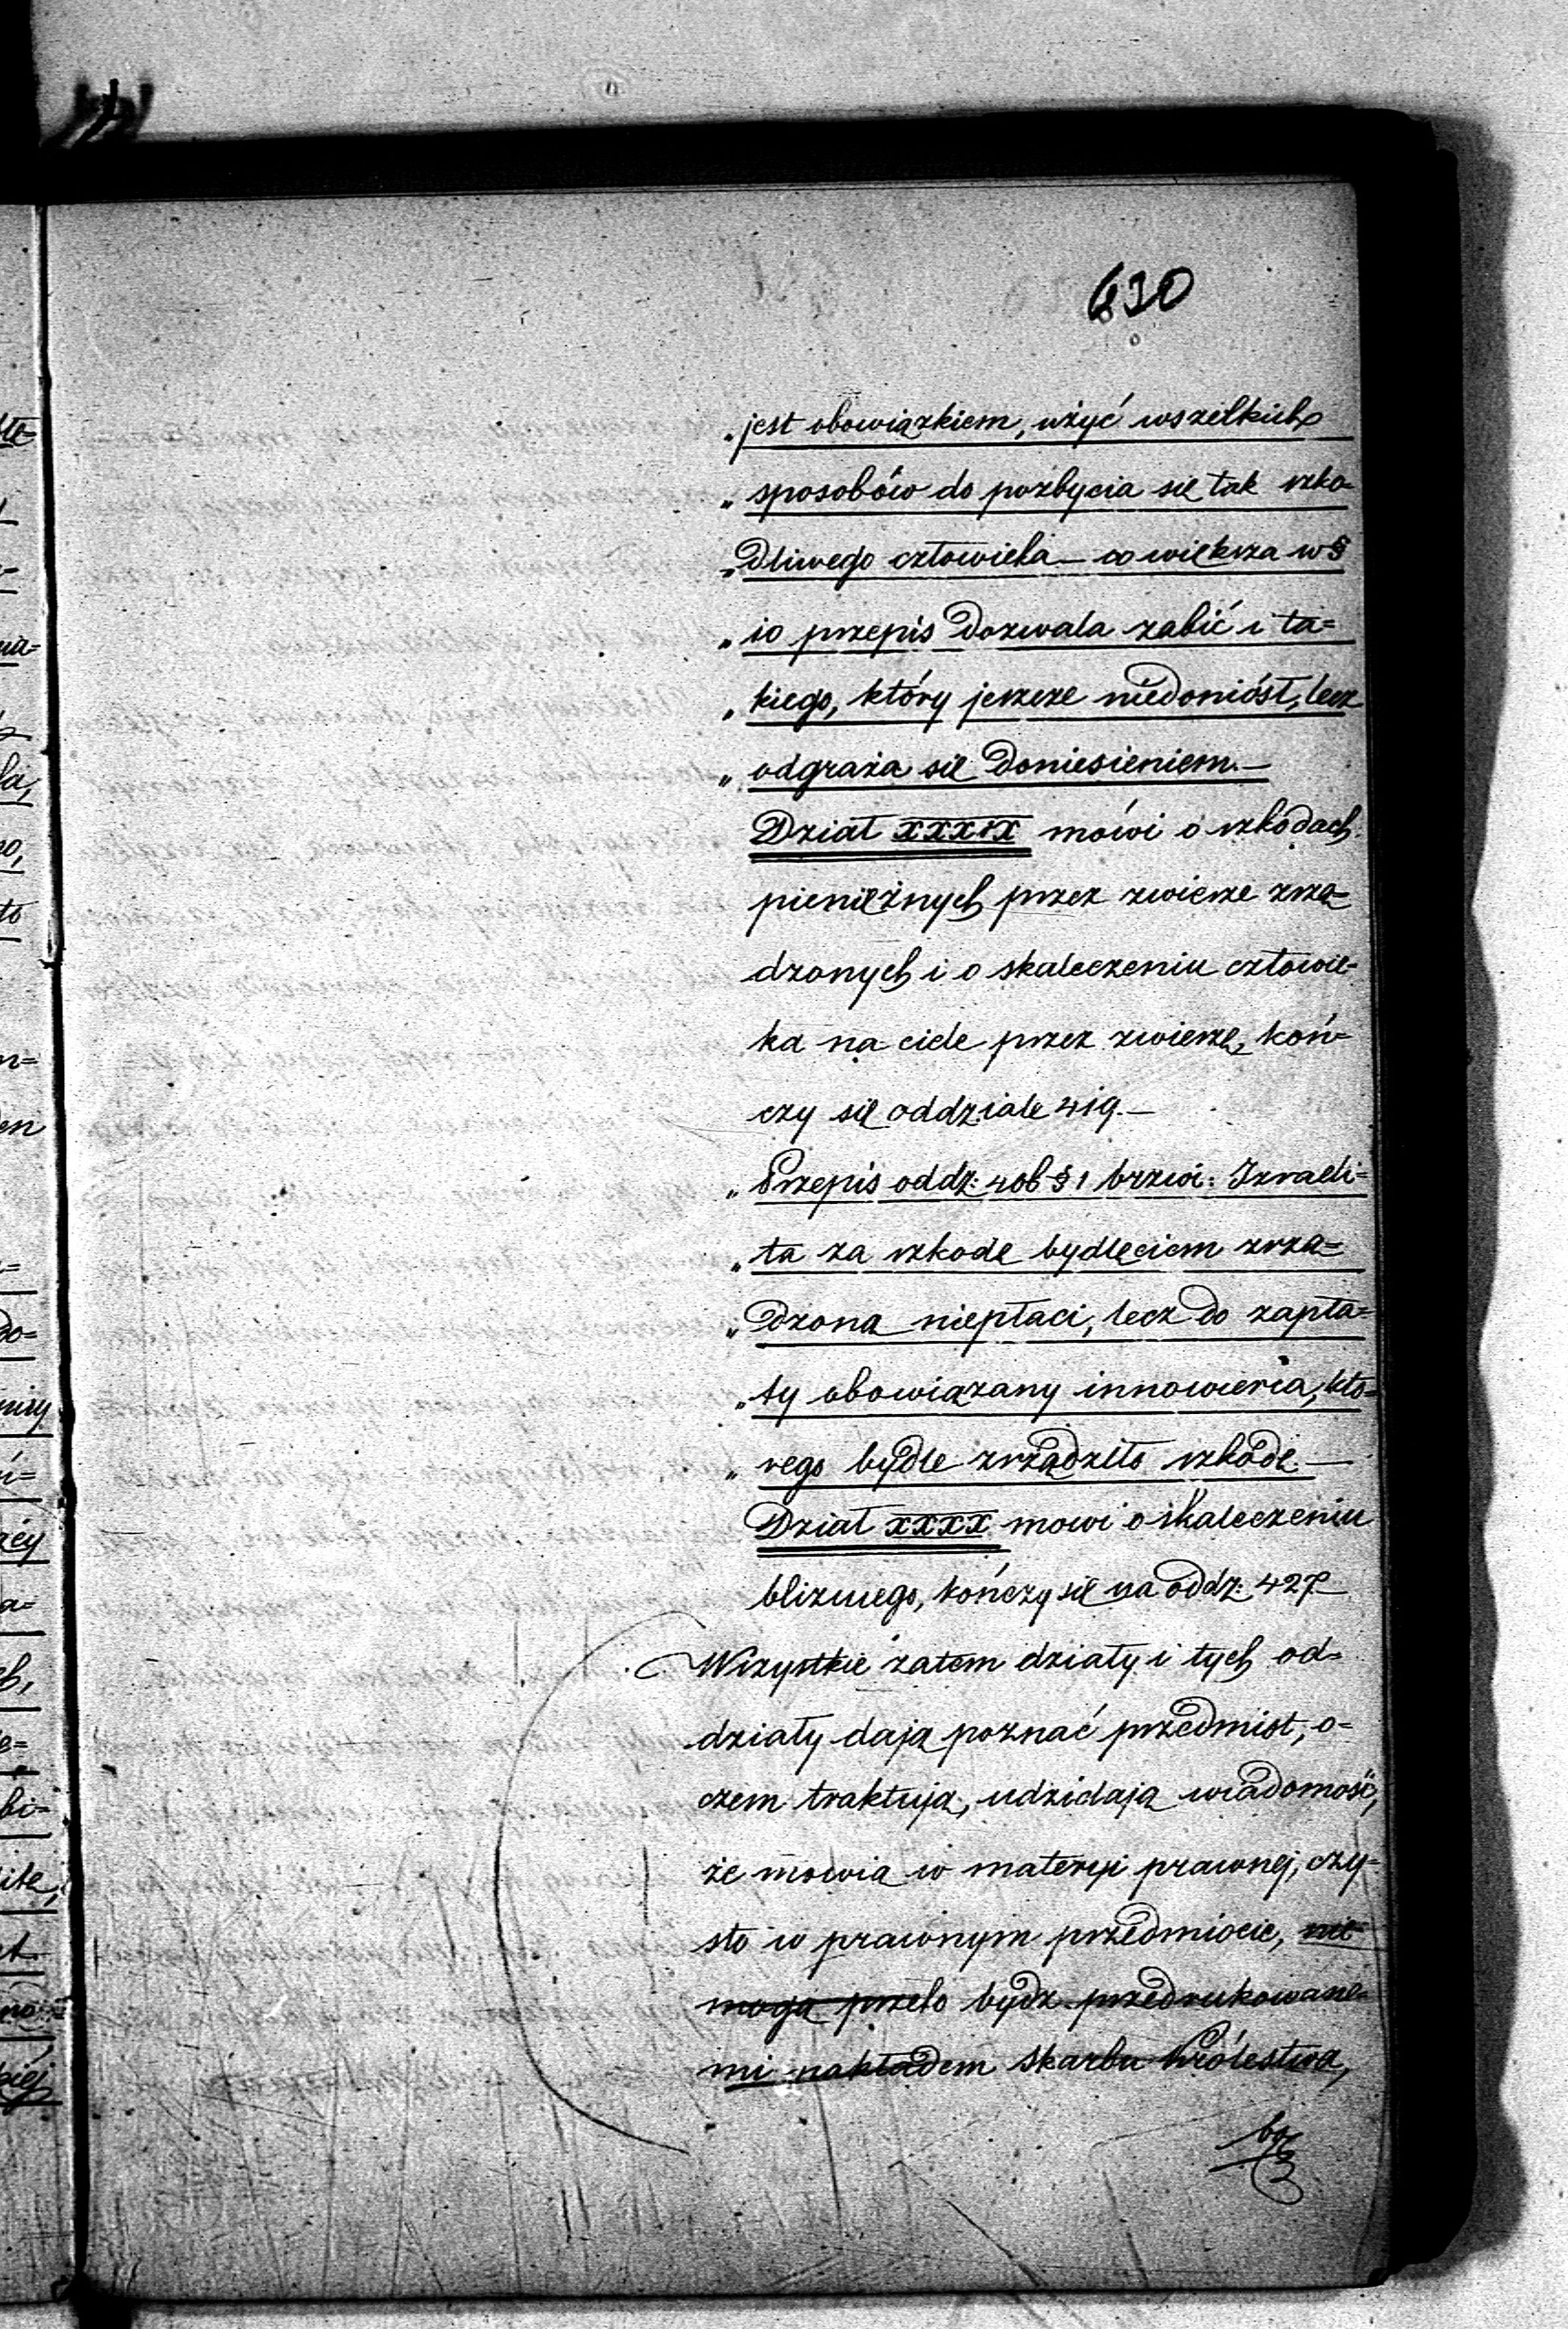 630
„jest obowiązkiem, użyć wszelkich
„sposobów do pozbycia się tak szko-
„dliwego człowieka – co większa w §
„10 przepis dozwala zabić i ta=
„kiego, który jeszcze niedoniósł, lecz
„odgraża się doniesieniem.–
Dział XXXIX mówi o szkodach
pieniężnych przez zwierze zrzą-
dzonych i o skaleczeniu człowie-
ka na ciele przez zwierzę, koń-
czy się oddziale 419.–
„Przepis oddz: 406 § 1 brzmi: Izraeli=
„ta za szkodę bydlęciem zrzą=
„dzoną niepłaci, lecz do zapła=
„ty obowiązany innowierca, któ-
„rego bydle zrządziło szkodę.–
Dział XXXX mowi o skaleczeniu
bliznego, kończy się na oddz: 427
Wszystkie zatem działy i tych od=
działy dają poznać przedmiot, o=
czem traktują, udzielają wiadomość,
że mowią w materyi prawnej, czy-
sto w prawnym przedmiocie, nie-
mogą przeto bydz przedrukowane-
mi nakładem skarbu Królestwa,